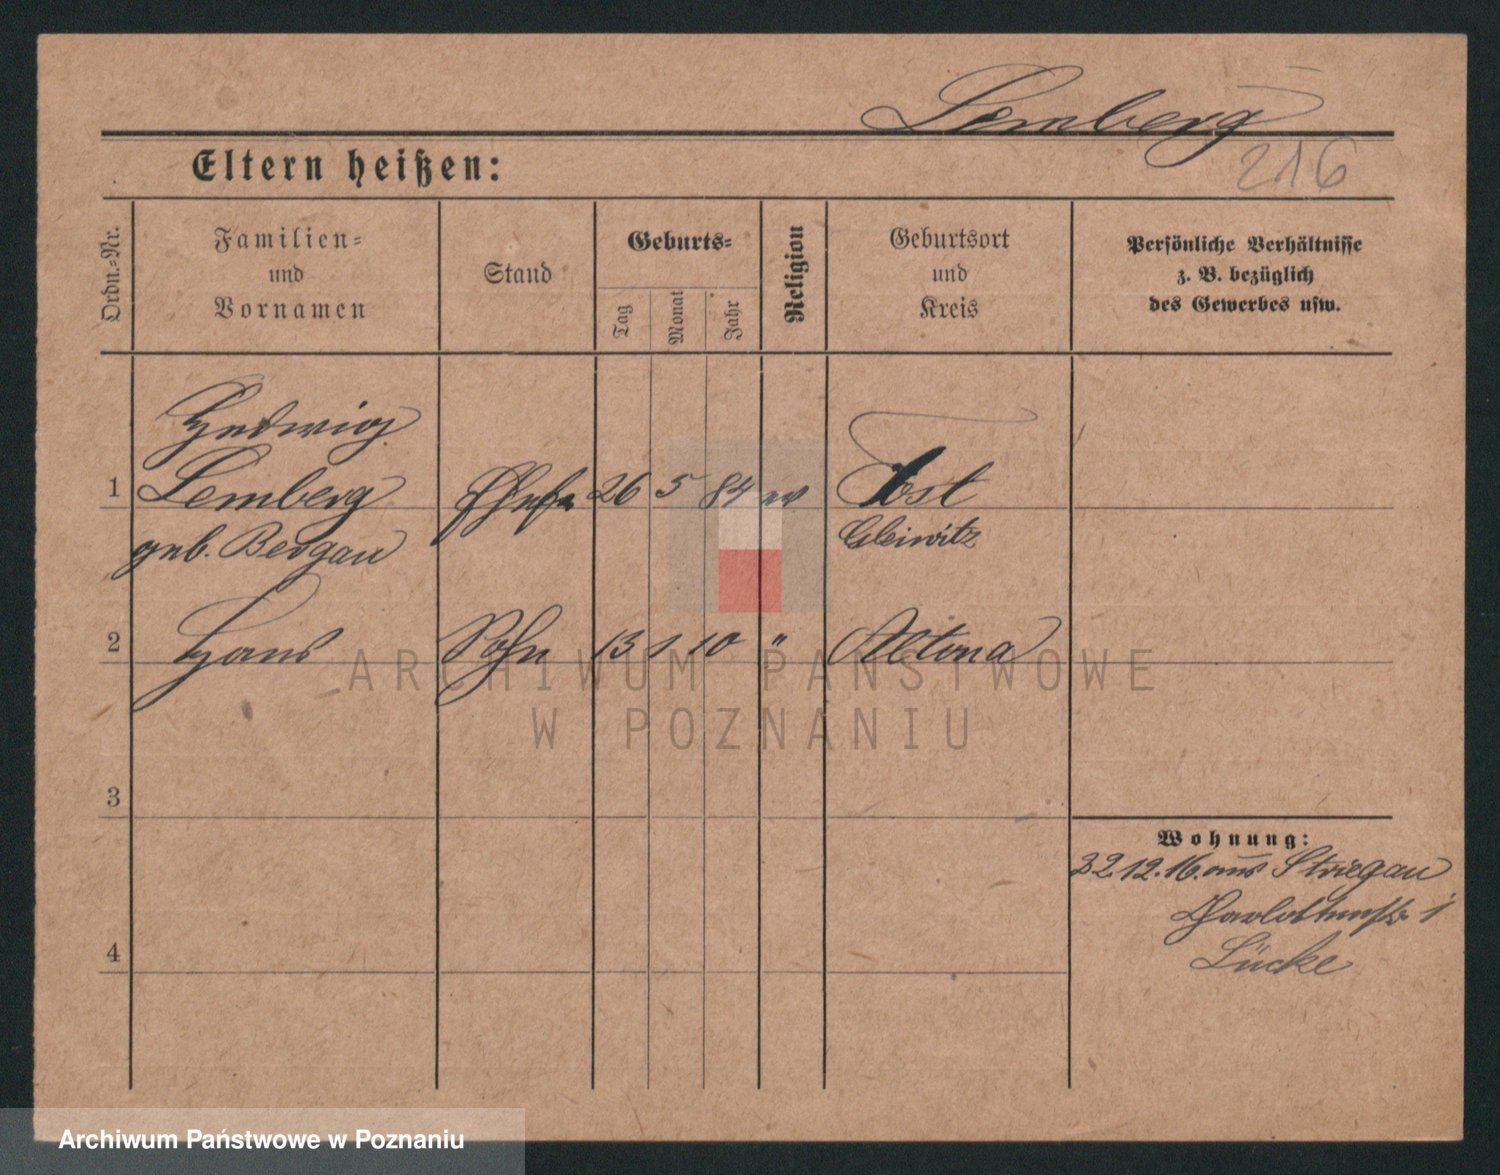 Lemberg
216
Eltern heißen:
Ordn.-Nr.
Familien-
und
Vornamen
Stand
Geburts-
Tag
Monat
Jahr
Religion
Geburtsort
und
Kreis
Persönliche Verhältnisse
z. B. bezüglich
des Gewerbes usw.
Hedwig
1 Lemberg Ehefr 26 5 84 ev Tost
geb. Bergau Gleiwitz
2 Hans Sohn 13 1 10 " Altona
3
4
Wohnung:
22.12.16. aus Striegau
Charlottenstr 1
Lücke
ARCHIWUM PAŃSTWOWE
W POZNANIU
Archiwum Państwowe w Poznaniu